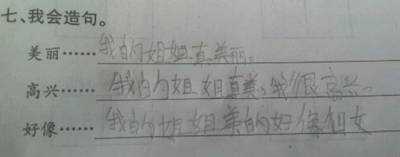 七、我会造句。
美丽……我的姐姐真美丽。
高兴……我的姐姐真美。我很高兴。
好像……我的姐姐美的好像仙女